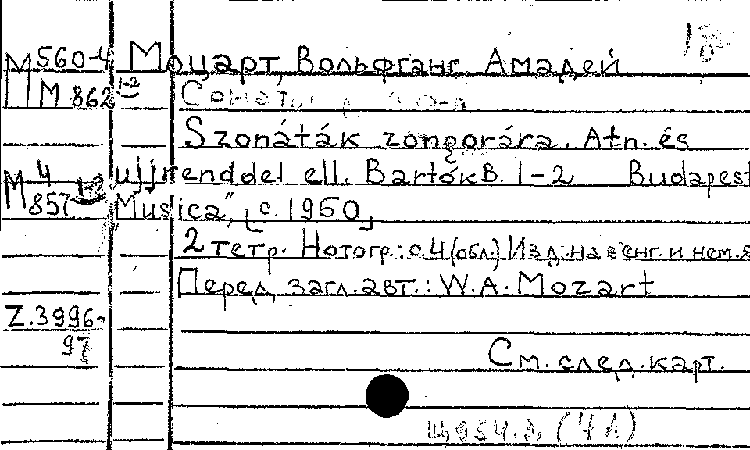 М560-4 Моцарт, Вольфганг Амадей
М 862 1-2
Szonáták zongorára. Átn. és
М 4/857 1-2 ujjrenddel ell. Bartók B. 1-2 Budapest
"Musica", [c. 1950]
2 тетр. Нотогр.: с. 4 (обл.) Изд. на венг. и нем. я
Перед загл. авт.: W. A. Mozart
Z.3996-
97
См. след. карт.